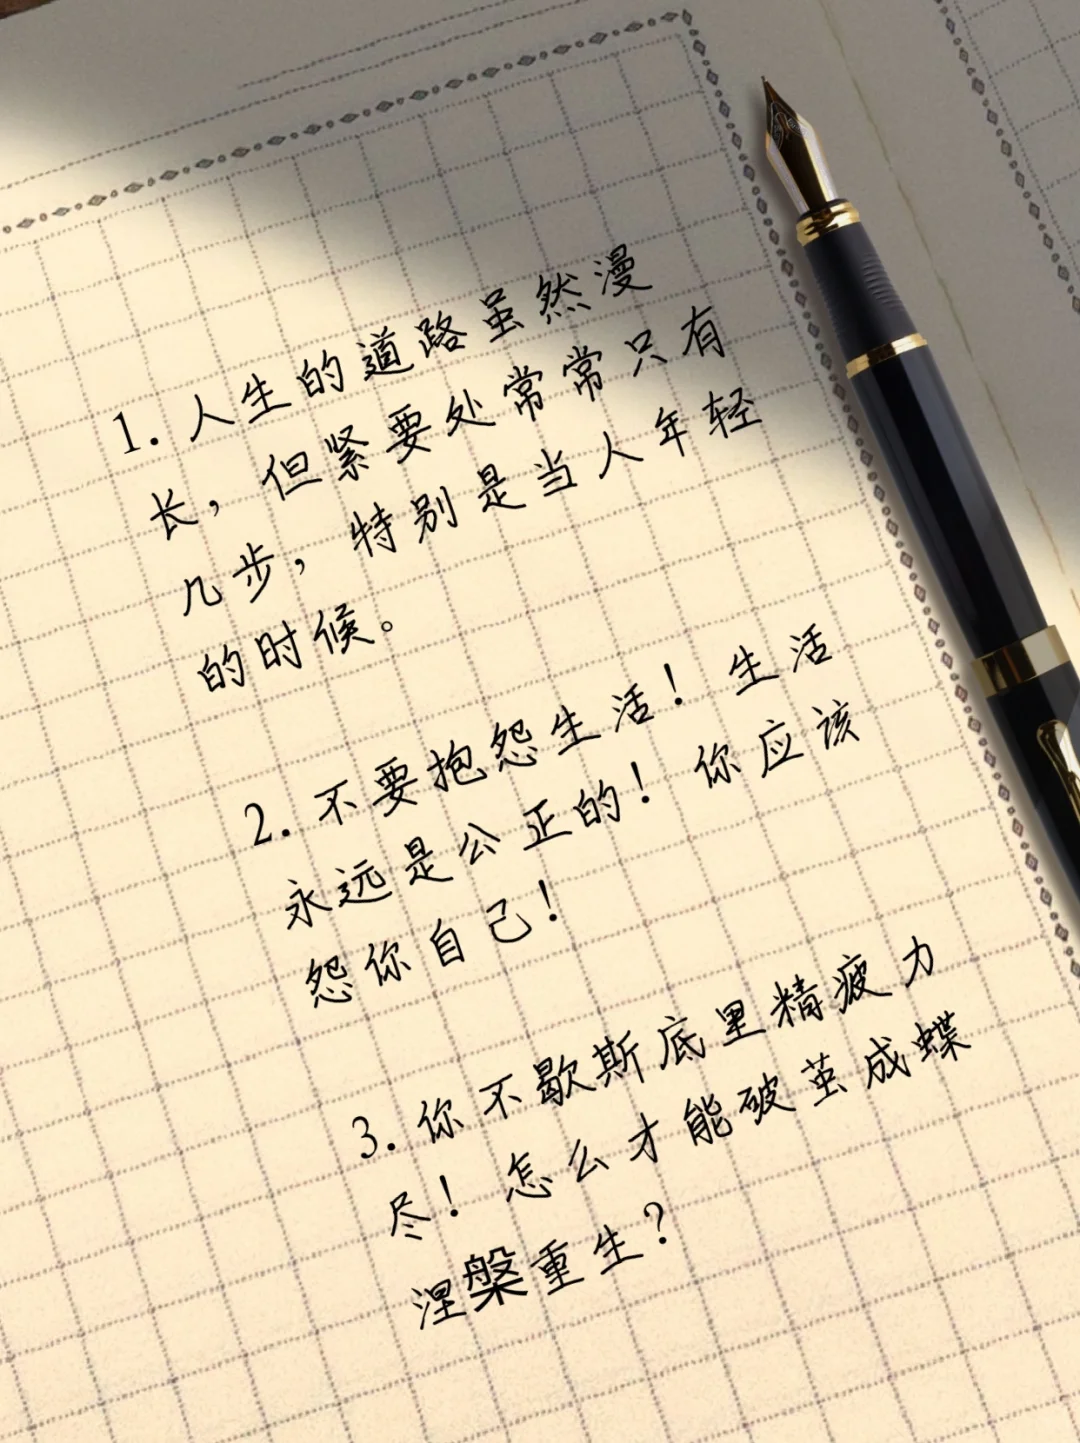 1. 人生的道路虽然漫
长，但紧要处常常只有
几步，特别是当人年轻
的时候。
2. 不要抱怨生活！生活
永远是公正的！你应该
怨你自己！
3. 你不歇斯底里精疲力
尽！怎么才能破茧成蝶
涅槃重生？